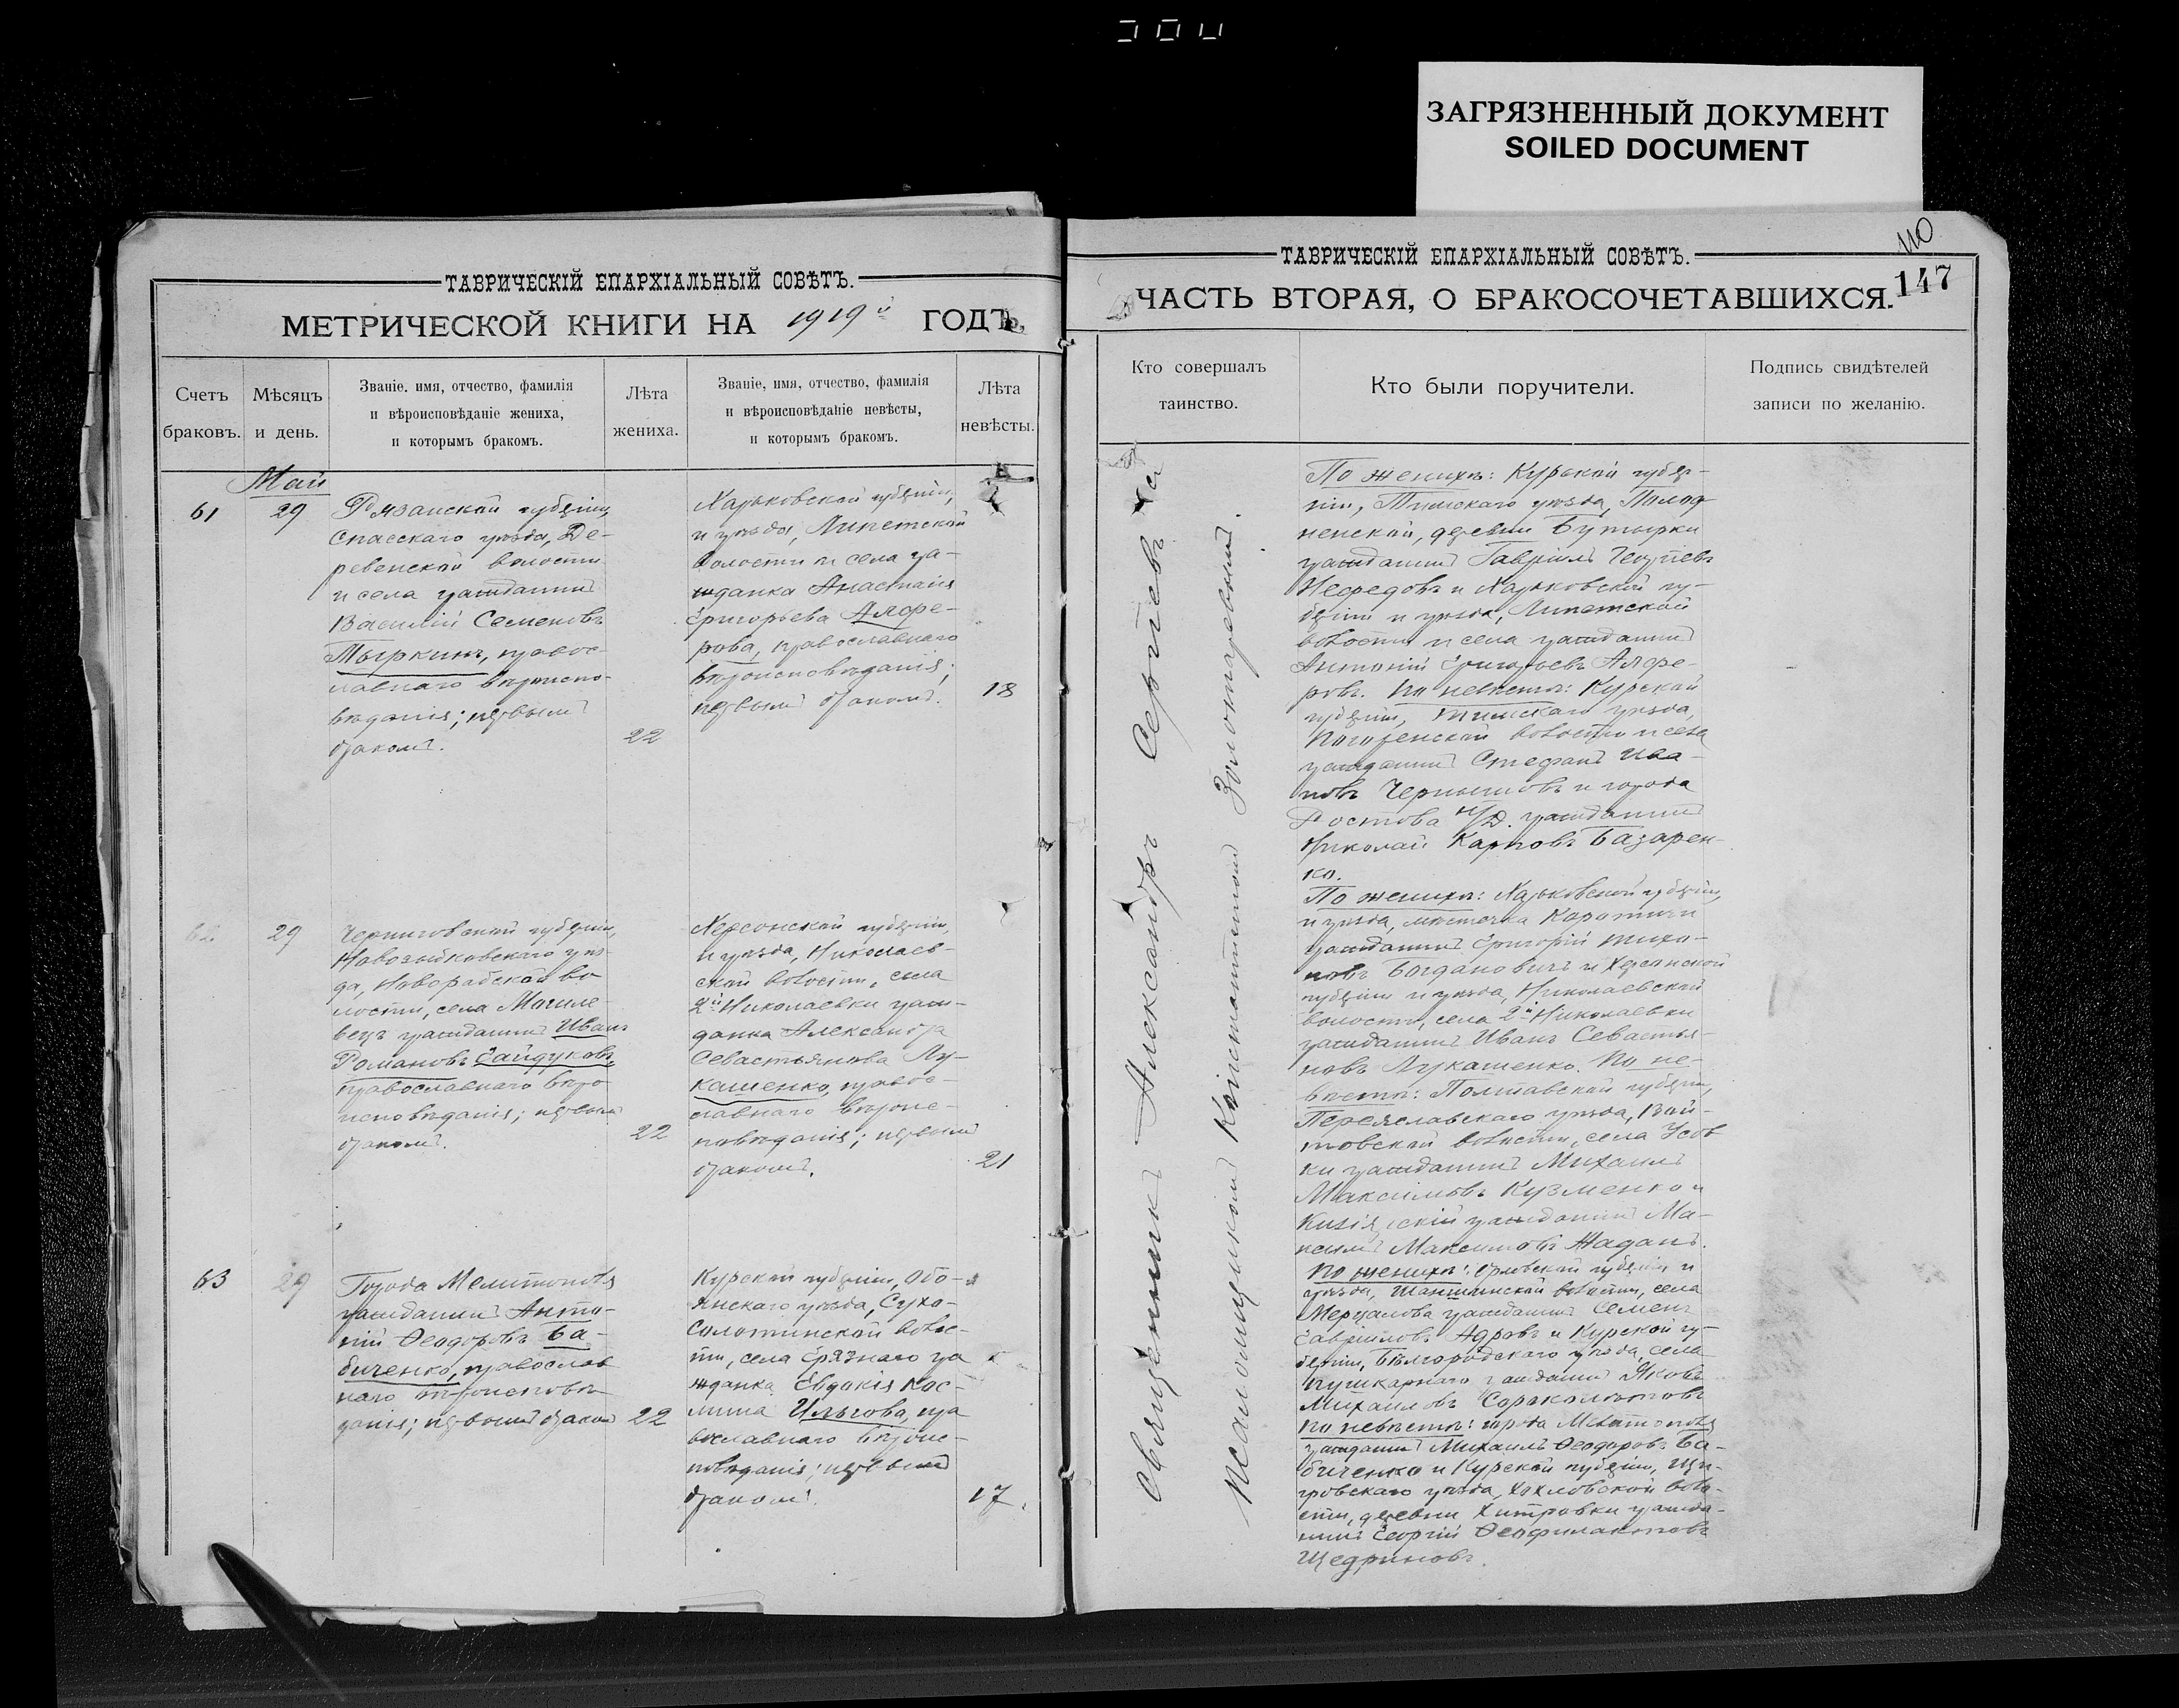 ЗАГРЯЗНЕННЫЙ ДОКУМЕНТ
SOILED DOCUMENT
ТАВРИЧЕСКІЙ ЕПАРХІАЛЬНЫЙ СОВѢТЪ.
МЕТРИЧЕСКОЙ КНИГИ НА 1919й ГОДЪ.
Счетъ браковъ.
Мѣсяцъ и день.
Званіе, имя, отчество, фамилія
и вѣроисповѣданіе жениха,
и которымъ бракомъ.
Лѣта жениха.
Званіе, имя, отчество, фамилія
и вѣроисповѣданіе невѣсты,
и которымъ бракомъ.
Лѣта невѣсты.
Май
61
29
Рязанской губерніи,
Спасскаго уѣзда, Де-
ревенской волости
и села гражданинъ
Василій Семеновъ
Мыркинъ, правос-
лавнаго вѣроиспо-
вѣданія; первымъ
бракомъ.
22
Харьковской губерніи,
и уѣзда, Липетской
волости и села гра-
жданка Анастасія
Григорьева Алфе-
рова, православнаго
вѣроисповѣданія;
первымъ бракомъ.
18
62
29
Черниговской губерніи,
Новозыбковскаго уѣз-
да, волости, села Могиле-
вецъ гражданинъ Иванъ
Романовъ Гайдуковъ,
православнаго вѣро-
исповѣданія; первымъ
бракомъ.
22
Херсонской губерніи,
и уѣзда, Николаев-
ской волости, села
2й Николаевки граж-
данка Александра
Севастьянова Лу-
кашенко, правос-
лавнаго вѣроис-
повѣданія; первымъ
бракомъ.
21
63
29
Города Мелитополя
гражданинъ Анто-
ній Ѳеодоровъ Ба-
биченко, православ
наго вѣроисповѣ-
данія; первымъ бракомъ
22
Курской губерніи, Обо-
янскаго уѣзда, Сухо-
солотинской волос-
ти, села Грязнаго гра
жданка Евдокія Кос-
мина Ильгова, пра
вославнаго вѣроис-
повѣданія; первымъ
бракомъ.
17.
110
ТАВРИЧЕСКІЙ ЕПАРХІАЛЬНЫЙ СОВѢТЪ.
147
ЧАСТЬ ВТОРАЯ, О БРАКОСОЧЕТАВШИХСЯ.
Кто совершалъ таинство.
Кто были поручители.
Подпись свидѣтелей
записи по желанію.
Священникъ Александръ Сергіевъ
Псаломщикъ Константинъ Золотаревскій.
По женихѣ: Курской губер-
ніи, Тимскаго уѣзда,
деревни Бутырки
гражданинъ Гавріилъ Георгіевъ
Нефедовъ и Харьковской гу-
берніи и уѣзда, Липетской
волости и села гражданинъ
Антоній Григорьевъ Алфе-
ровъ. По невѣстѣ: Курской
губерніи, Тимскаго уѣзда,
волости и села
гражданинъ Стефанъ Ива-
новъ Чернышовъ и города
Ростова н/Д. гражданинъ
Николай Карповъ Базарен-
ко.
По женихѣ: Харьковской губерніи,
и уѣзда, мѣстечка Коротичи
гражданинъ Григорій Тихо-
новъ Богдановичъ и Херсонской
губерніи и уѣзда, Николаевской
волости, села 2й Николаевки
гражданинъ Иванъ Севастья-
новъ Лукашенко. По не-
вѣстѣ: Полтавской губерніи,
Переяславскаго уѣзда, Вой-
товской волости, села Усов
ки гражданинъ Михаилъ
Максимовъ Кузменко и
гражданинъ Ма-
ксимъ Максимовъ Жаданъ.
По женихѣ: Орловской губерніи и
уѣзда, волости, села
Мерцалова гражданинъ Семенъ
Гавріиловъ Адровъ и Курской гу-
берніи, Бѣлгородскаго уѣзда, села
Пушкарнаго гражданинъ Яковъ
Михаиловъ Сороколѣтовъ
По невѣстѣ: города Мелитополя
гражданинъ Михаилъ Ѳеодоровъ Ба-
биченко и Курской губерніи, Щи-
гровскаго уѣзда, Хохловской воло-
сти, деревни Хитровки гражда-
нинъ Георгій Ѳеофилактовъ
Щедриновъ.